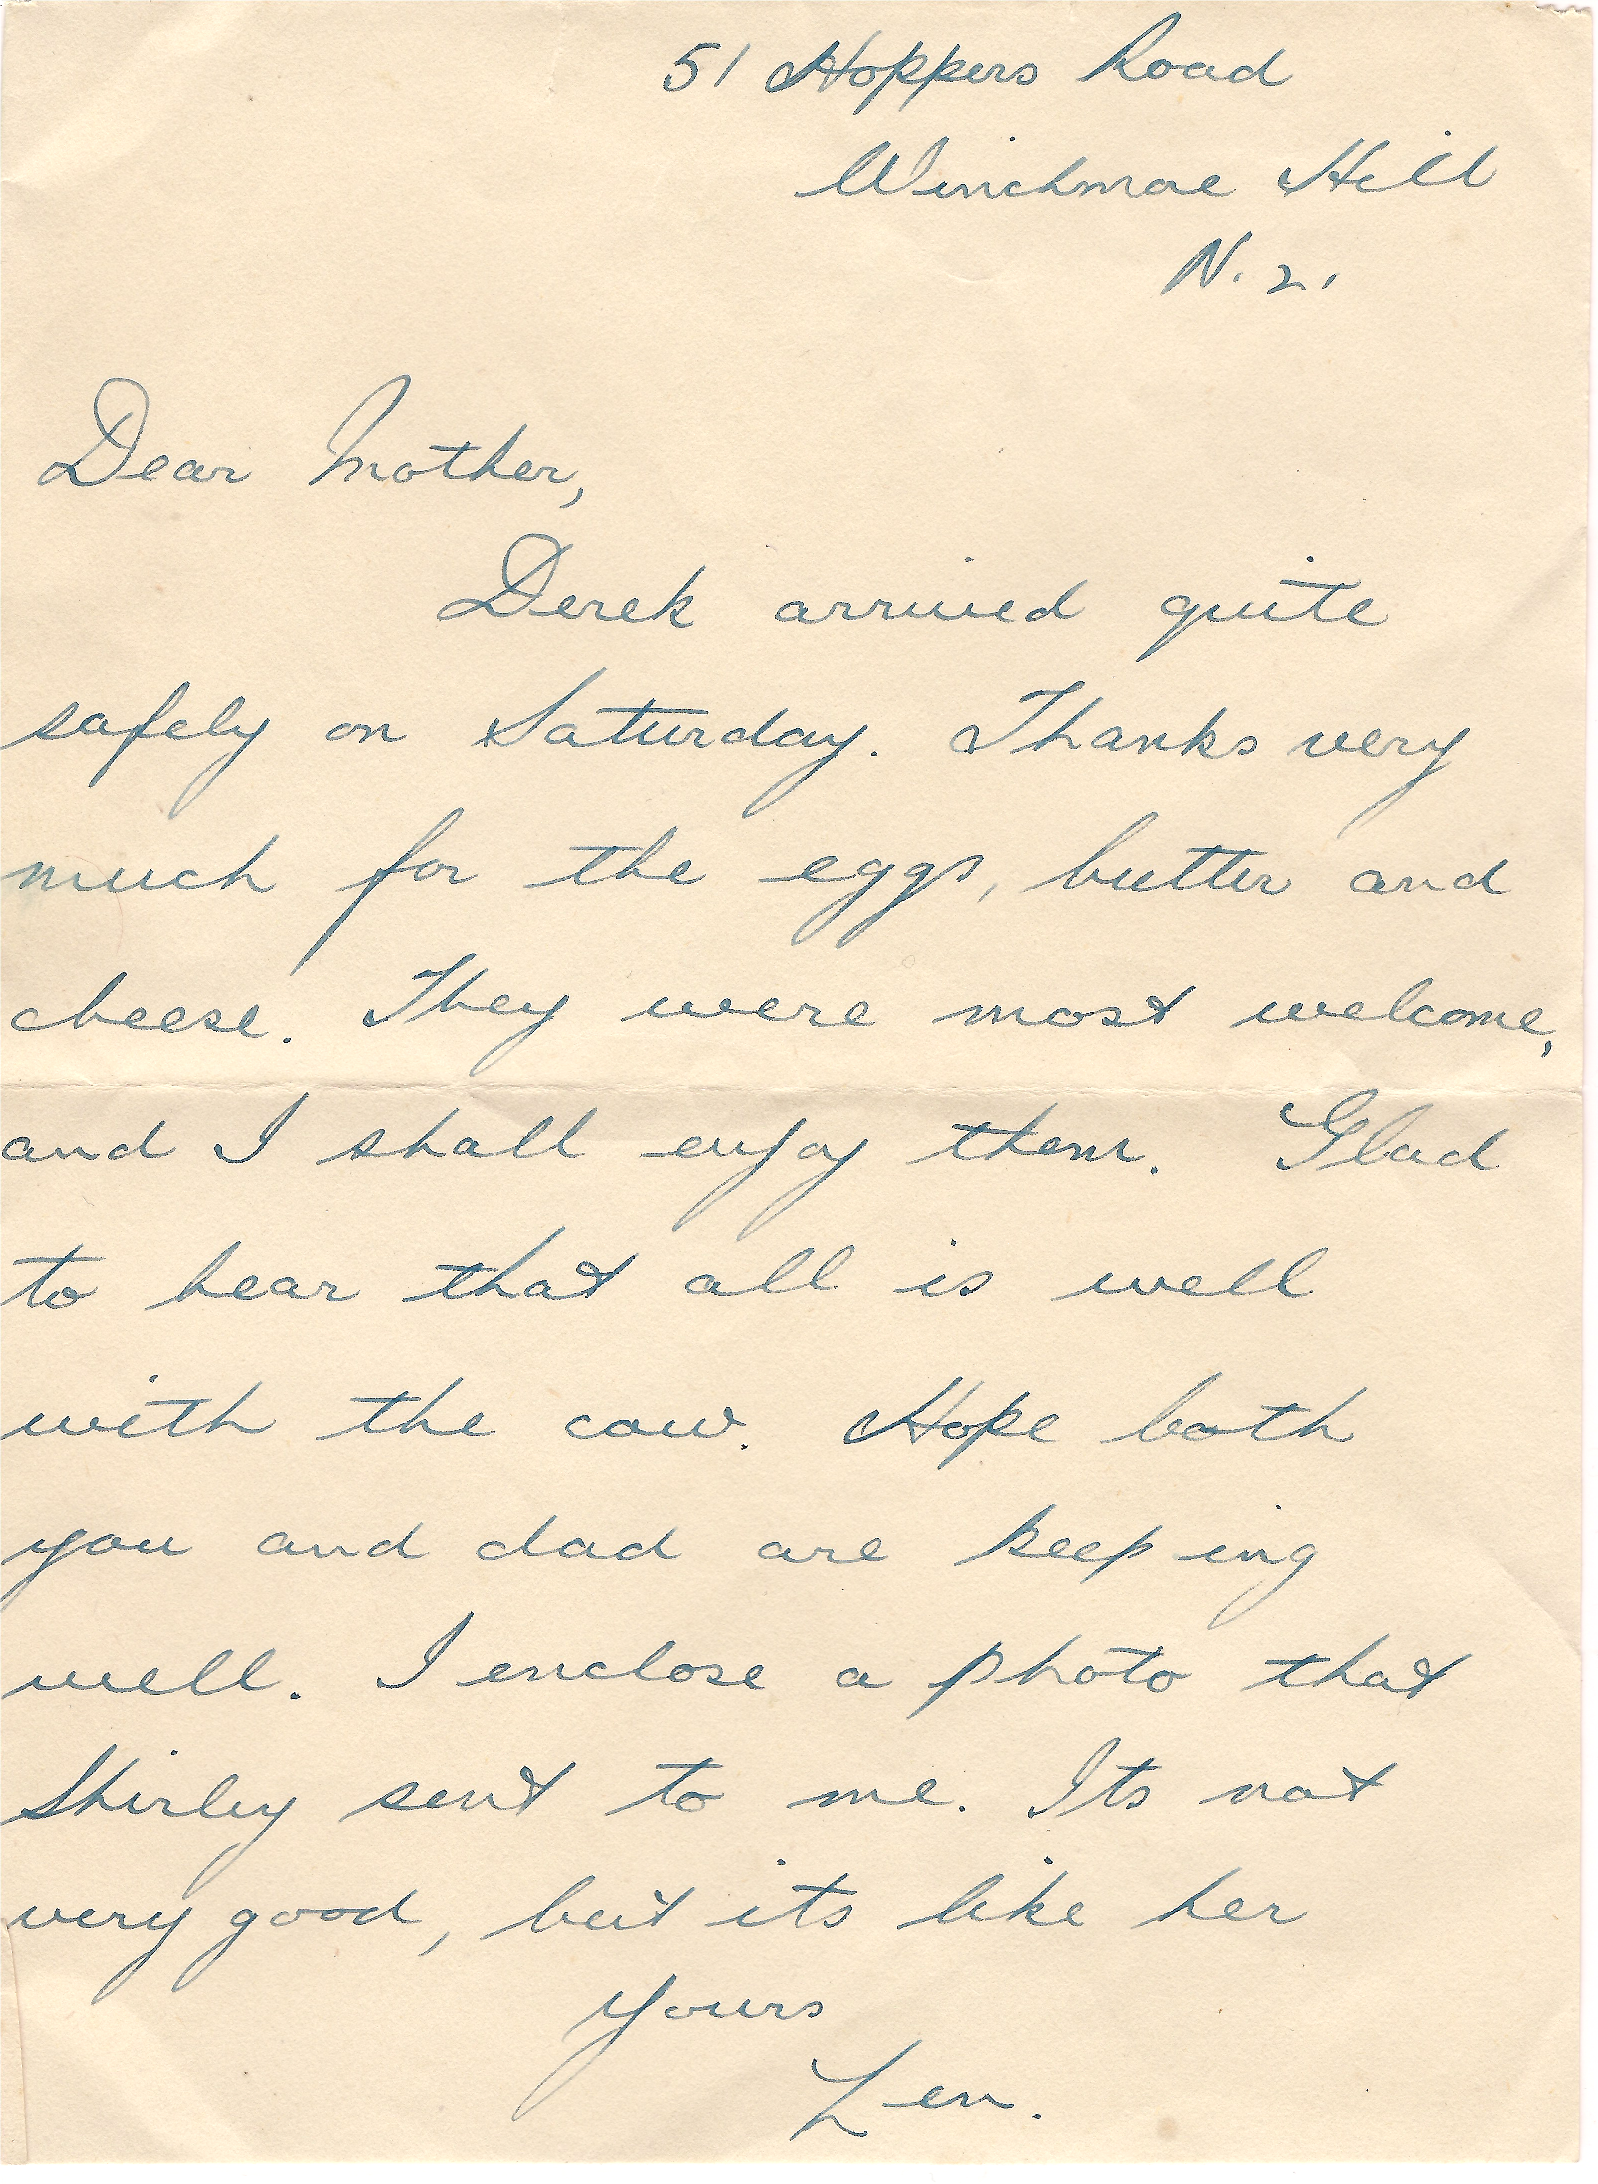 51 Hoppers Road
Winchmore Hill
N. 21
Dear Mother,
Derek arrived quite
safely on Saturday. Thanks very
much for the eggs, butter and
cheese. They were most welcome,
and I shall enjoy them. Glad
to hear that all is well
with the cow. Hope both
you and dad are keeping
well. I enclose a photo that
Shirley sent to me. Its not
very good, but its like her
Yours
Len.